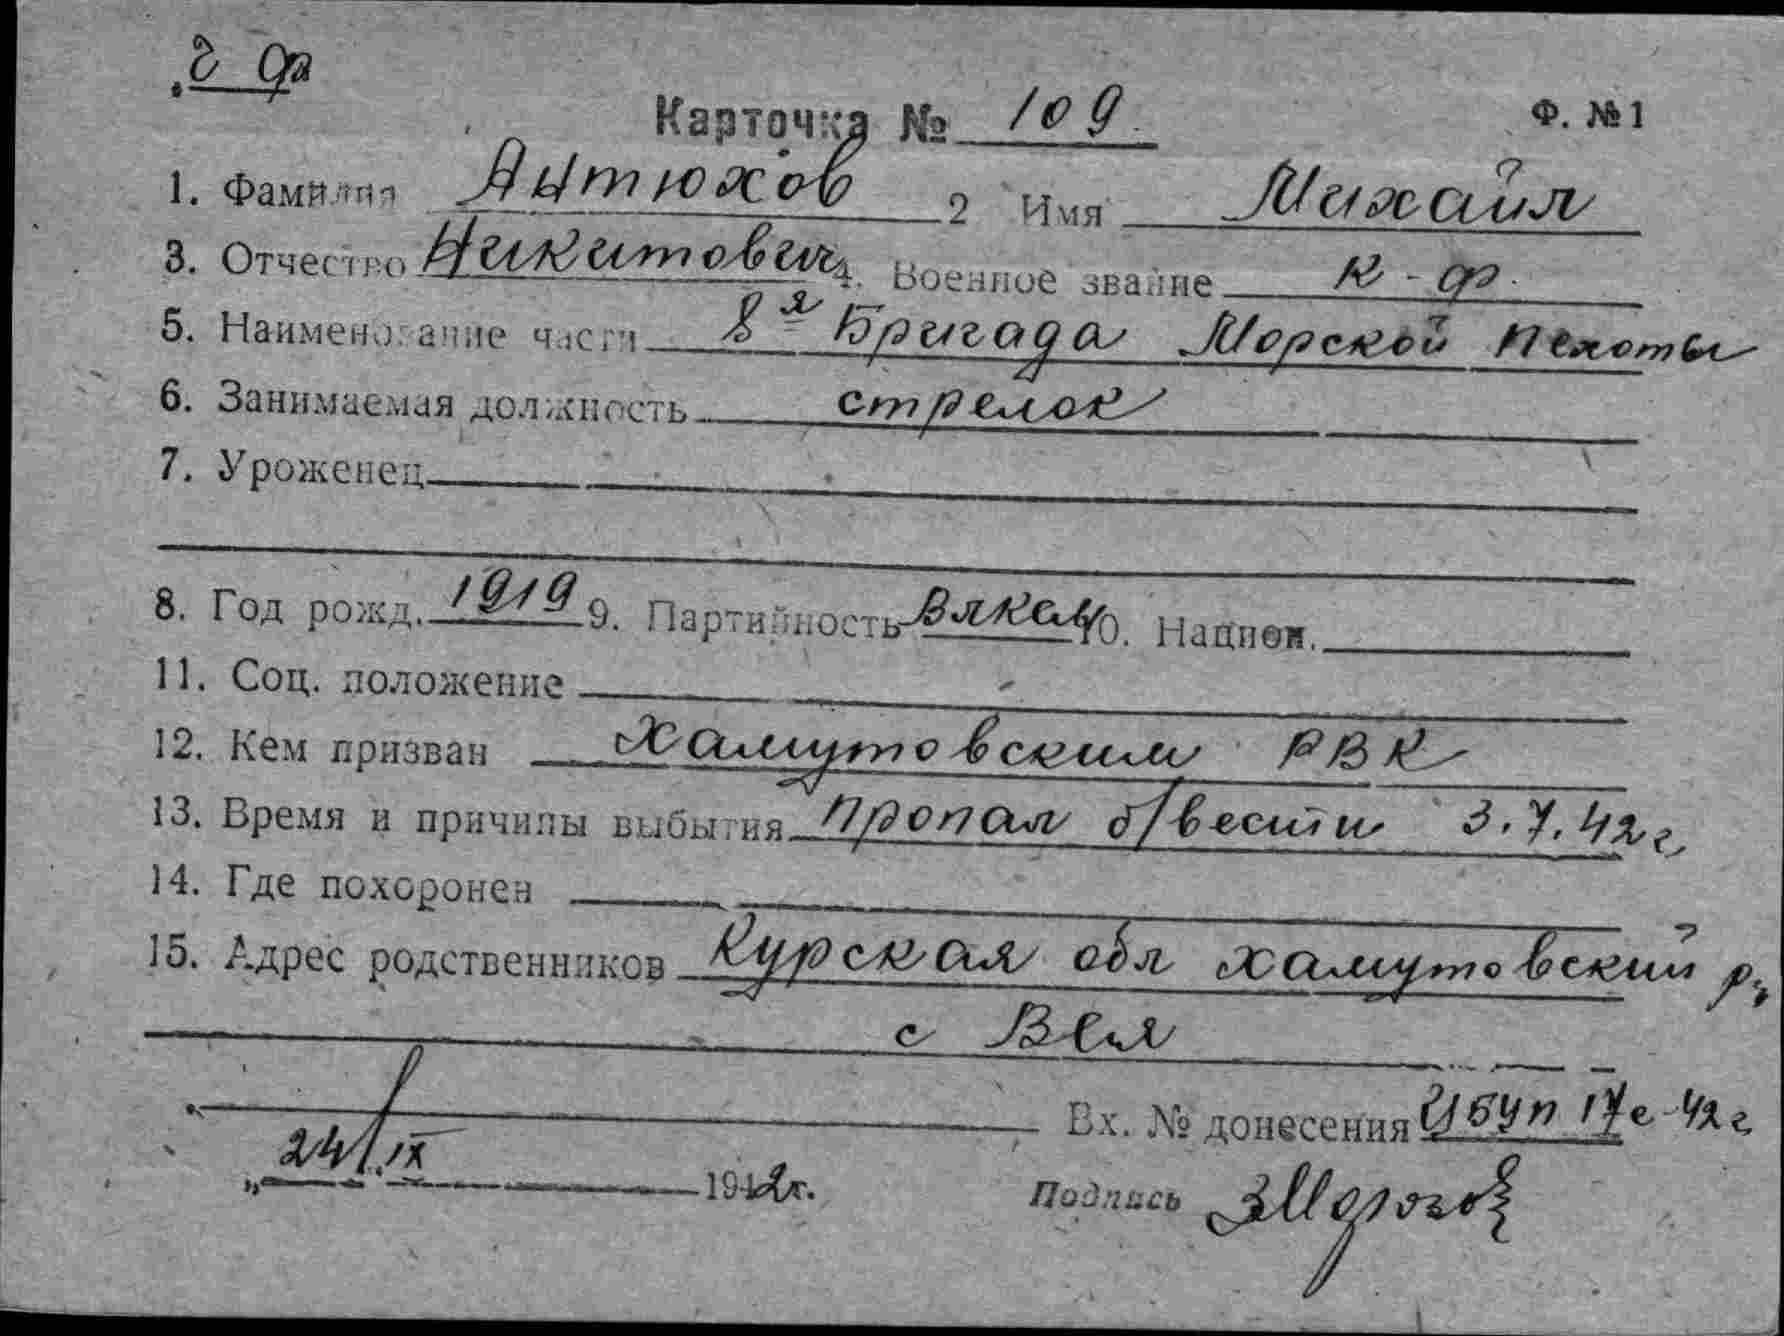 ч ф
Карточка № 109 Ф. № 1
1. Фамилия Антюхов 2 Имя Михаил
3. Отчество Никитович 4. Военное звание к-ф.
5. Наименование части 8я Бригада Морской пехоты
6. Занимаемая должность стрелок
7. Уроженец
8. Год рожд. 1919 9. Партийность Влксм 10. Национ.
11. Соц. положение
12. Кем призван Хамутовским РВК
13. Время и причины выбытия пропал б/вести 3.7.42 г
14. Где похоронен
15. Адрес родственников Курская обл Хамутовский р-
с
Вх. № донесения 17с-42 г.
„24.IX 1942г.
Подпись